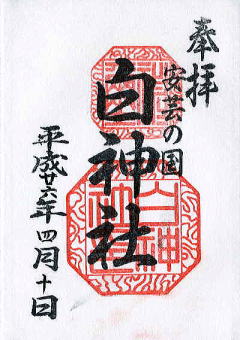 奉拝
安芸の国
白神社
平成廿六年四月十日